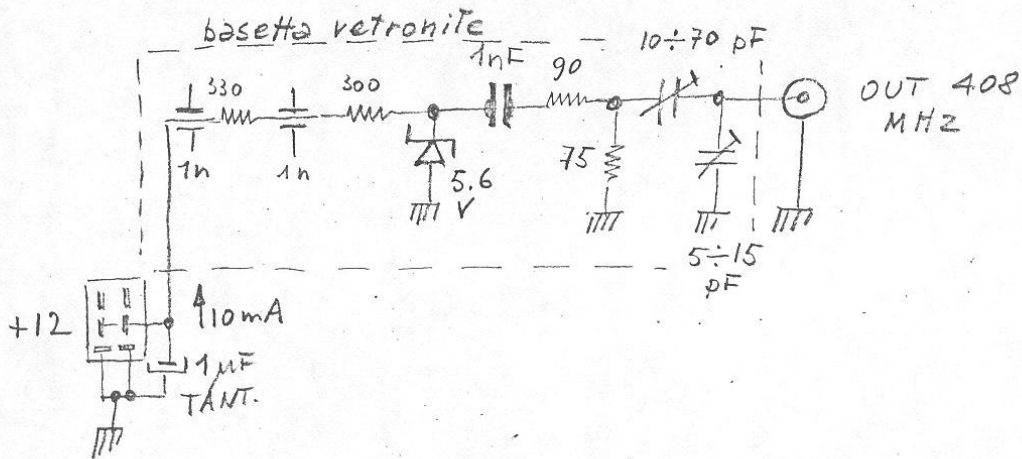 basetta vetronite
1nF
10÷70 pF
330
300
90
OUT 408
MHZ
1n
1n
5.6
V
75
5÷15
pF
+12
10mA
1µF
TANT.